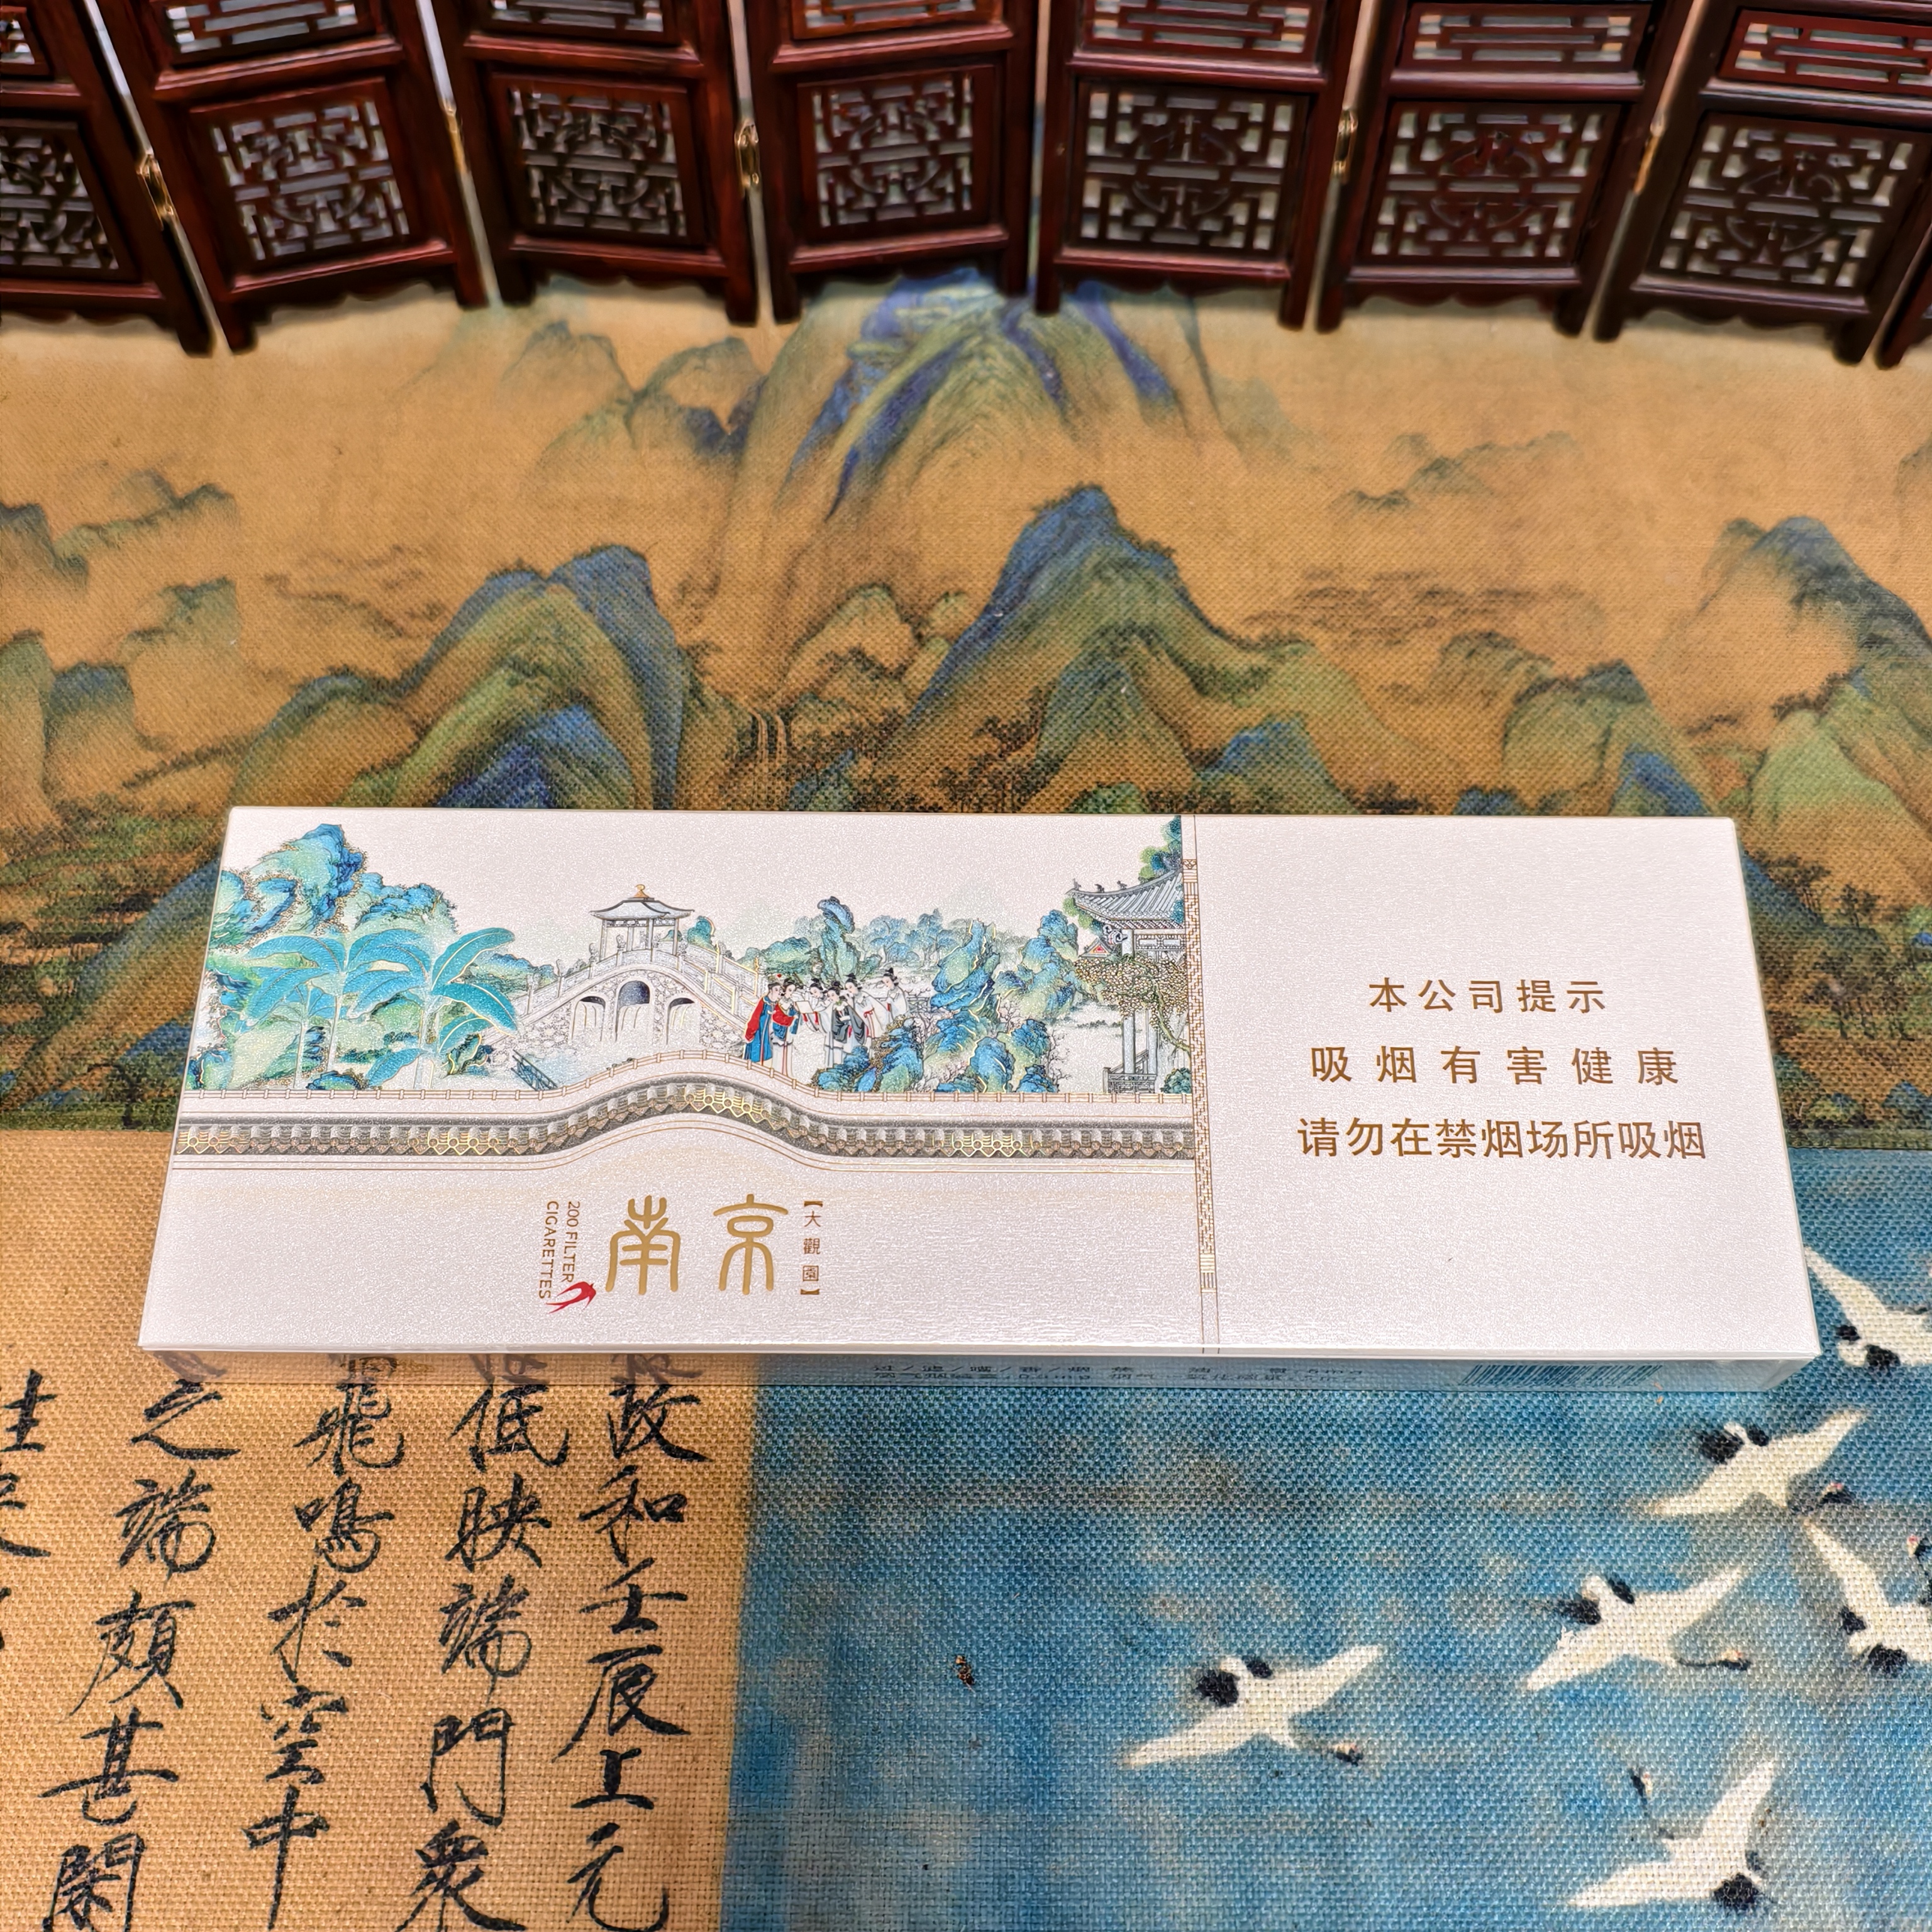 本公司提示
吸烟有害健康
请勿在禁烟场所吸烟
【大觀園】
南京
200 FILTER
CIGARETTES
政和壬辰上元
低映端門衆
飛鳴於空中
之端頗甚閑